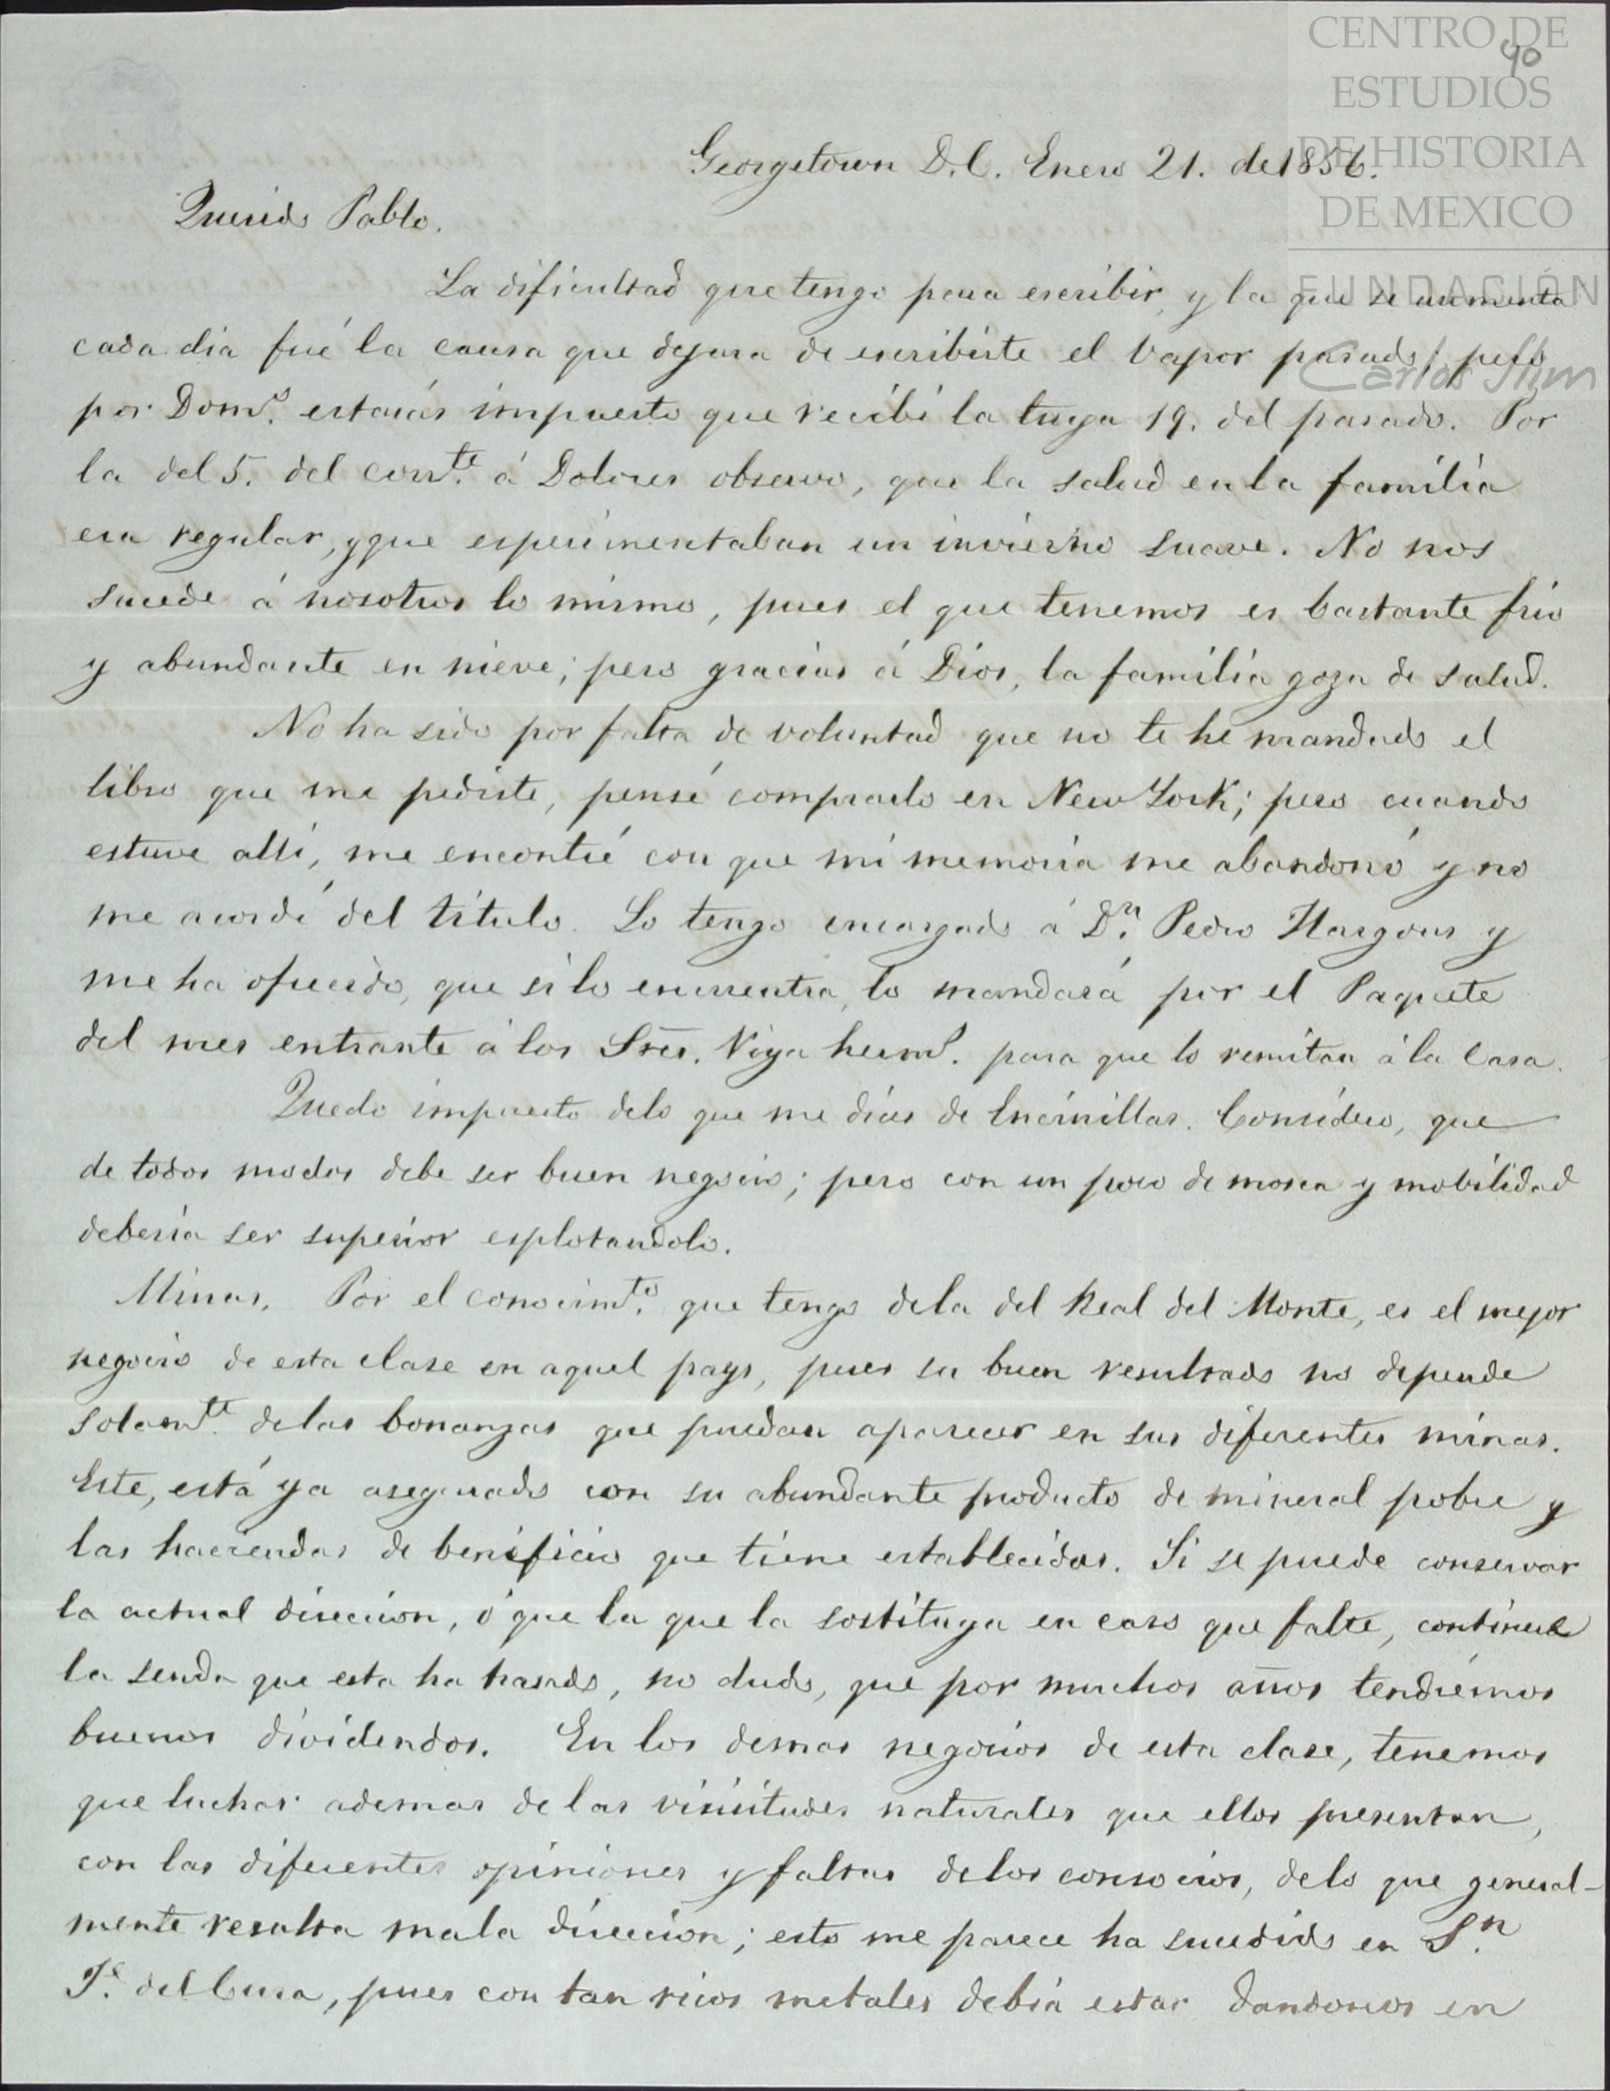 CENTRO DE
ESTUDIOS
DE HISTORIA
DE MEXICO
FUNDACIÓN
Carlos Slim
40
Georgetown D.C. Enero 21. de 1856.
Querido Pablo.
La dificultad que tengo para escribir, y la que se aumenta
cada dia fué la causa que dejara de escribirte el Vapor pasado; pero
por Domo. estarás impuesto que recibí la tuya 19. del pasado. Por
la del 5. del corrte. á Dolores observo, que la salud en la familia
era regular, y que esperimentaban un invierno suave. No nos
sucede á nosotros lo mismo, pues el que tenemos es bastante frio
y abundante en nieve; pero gracias á Dios, la familia goza de salud.
No ha sido por falta de voluntad que no te he mandado el
libro que me pediste, pensé comprarlo en New York; pero cuando
estuve allí, me encontré con que mi memoria me abandonó y no
me acordé del título. Lo tengo encargado á Dn. Pedro Hargous y
me ha ofrecido, que si lo encuentra, lo mandará por el Paquete
del mes entrante á los Sres. Viya hermo. para que lo remitan á la Casa.
Quedo impuesto delo que me dices de Encinillas. Considero, que
de todos modos debe ser buen negocio; pero con un poco de mosca y mobilidad
debería ser superior esplotandolo.
Minas. Por el conocimto. que tengo dela del Real del Monte, es el mejor
negocio de esta clase en aquel pays, pues su buen resultado no depende
solamte. delas bonanzas que puedan aparecer en sus diferentes minas.
Este, está ya asegurado con su abundante producto de mineral pobre y
las haciendas de beneficio que tiene establecidas. Si se puede conservar
la actual direccion, ó que la que la sostituya en caso que falte, continue
la senda que esta ha trasado, no dudo, que por muchos años tendrémos
buenos dividendos. En los demas negocios de esta clase, tenemos
que luchar ademas de las vicisitudes naturales que ellos presentan,
con las diferentes opiniones y faltas delos consocios, delo que general-
mente resulta mala direccion; esto me parece ha sucedido en Sn.
Je. del Cura, pues con tan ricos metales debia estar dandonos en